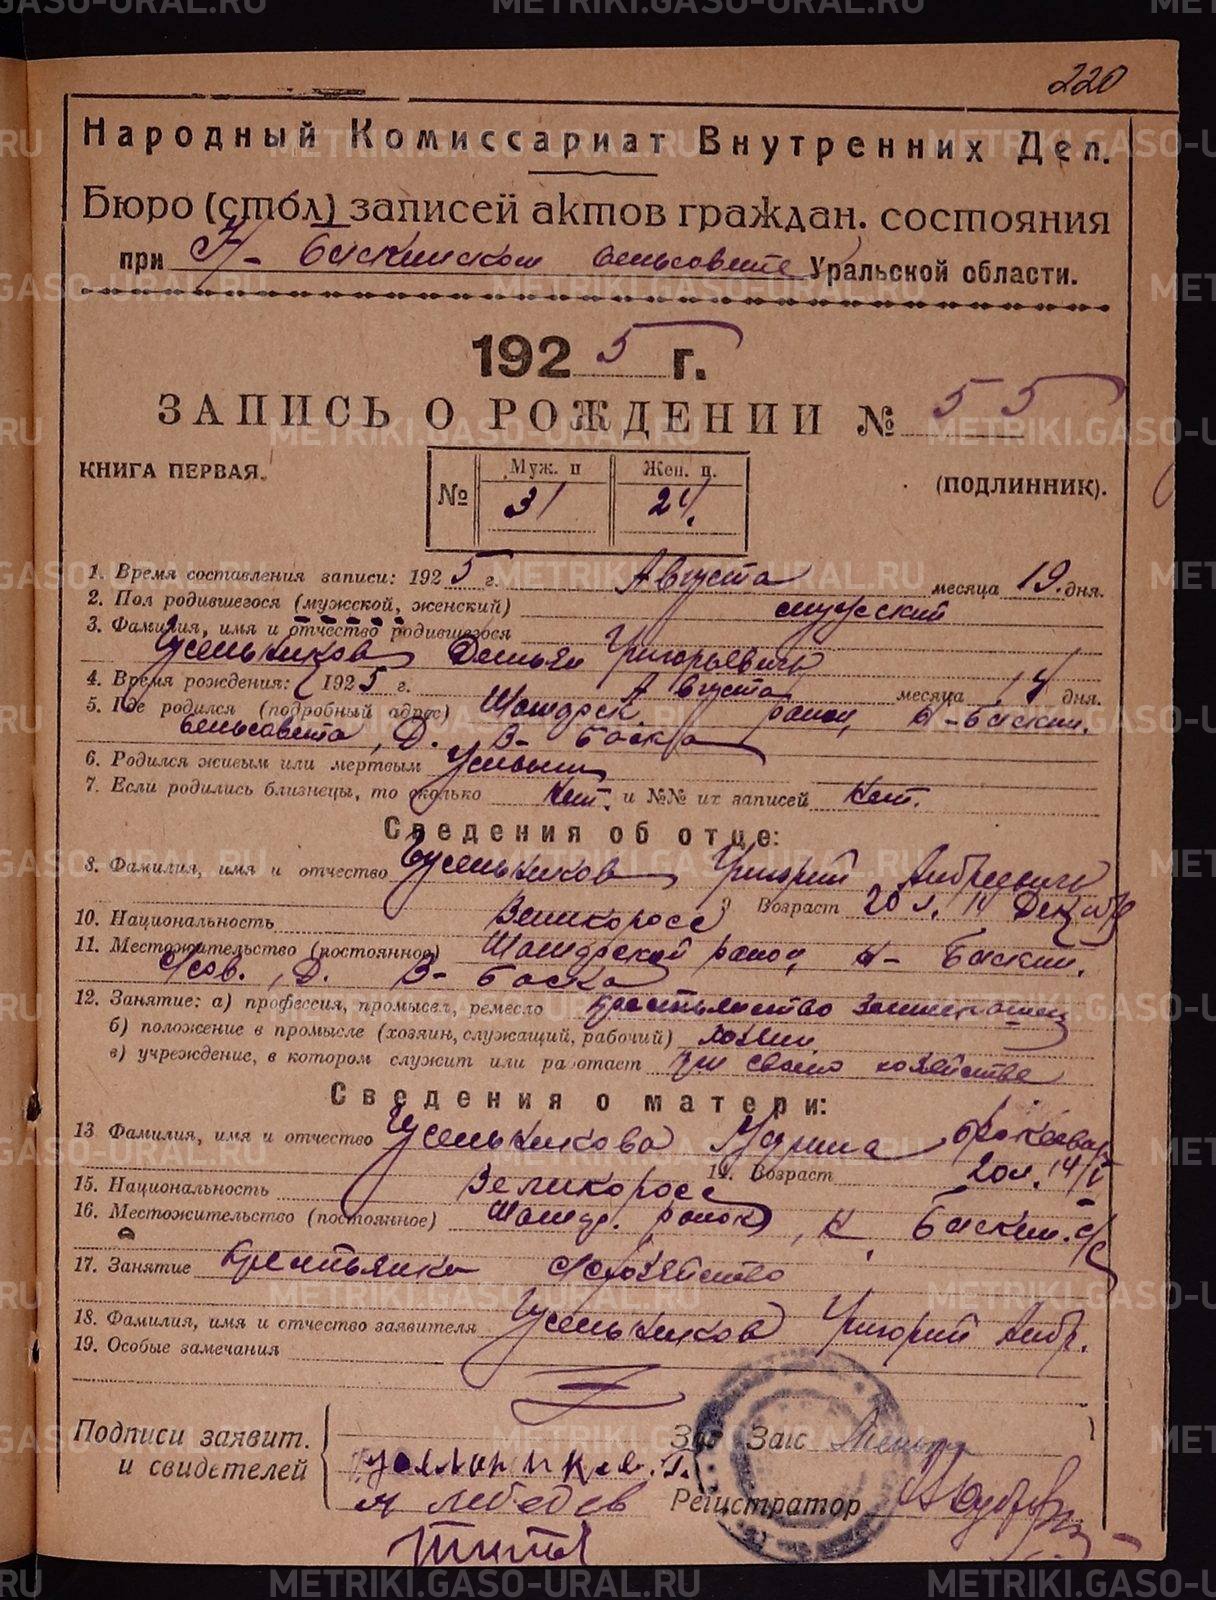 220
Народный Комиссариат Внутренних Дел.
Бюро (стол) записей актов граждан. состояния
при Н-Баскинском сельсовете Уральской области.
1925 г.
ЗАПИСЬ О РОЖДЕНИИ № 55
КНИГА ПЕРВАЯ.
(ПОДЛИННИК).
№ Муж. п Жен. п.
31 24
1. Время составления записи: 1925 г. Августа месяца 19 дня.
2. Пол родившегося (мужской, женский) мужской
3. Фамилия, имя и отчество родившегося
Демьян Григорьевич
4. Время рождения: 1925 г. Августа месяца 14 дня.
5. Где родился (подробный адрес) район, Н-Баскин.
сельсовета, Д. В-Баска
6. Родился живым или мертвым
7. Если родились близнецы, то сколько нет. и №№ их записей нет.
Сведения об отце:
8. Фамилия, имя и отчество Григорий Андреевич
9 Возраст 20 л. 14 Декабря
10. Национальность Великоросс
11. Местожительство (постоянное) район, Н-Баскин.
с/сов., Д. В-Баска
12. Занятие: а) профессия, промысел, ремесло крестьянство
б) положение в промысле (хозяин, служащий, рабочий) хозяин
в) учреждение, в котором служит или работает при своем хозяйстве
Сведения о матери:
13 Фамилия, имя и отчество
14. Возраст 20 л.
15. Национальность Великоросс
16. Местожительство (постоянное) район, Н Баскин. с/с
17. Занятие крестьянка с/хозяйство
18. Фамилия, имя и отчество заявителя Григорий Андр.
19. Особые замечания
Подписи заявит.
и свидетелей
Лебедев
Зав Загс
Регистратор
METRIKI.GASO-URAL.RU